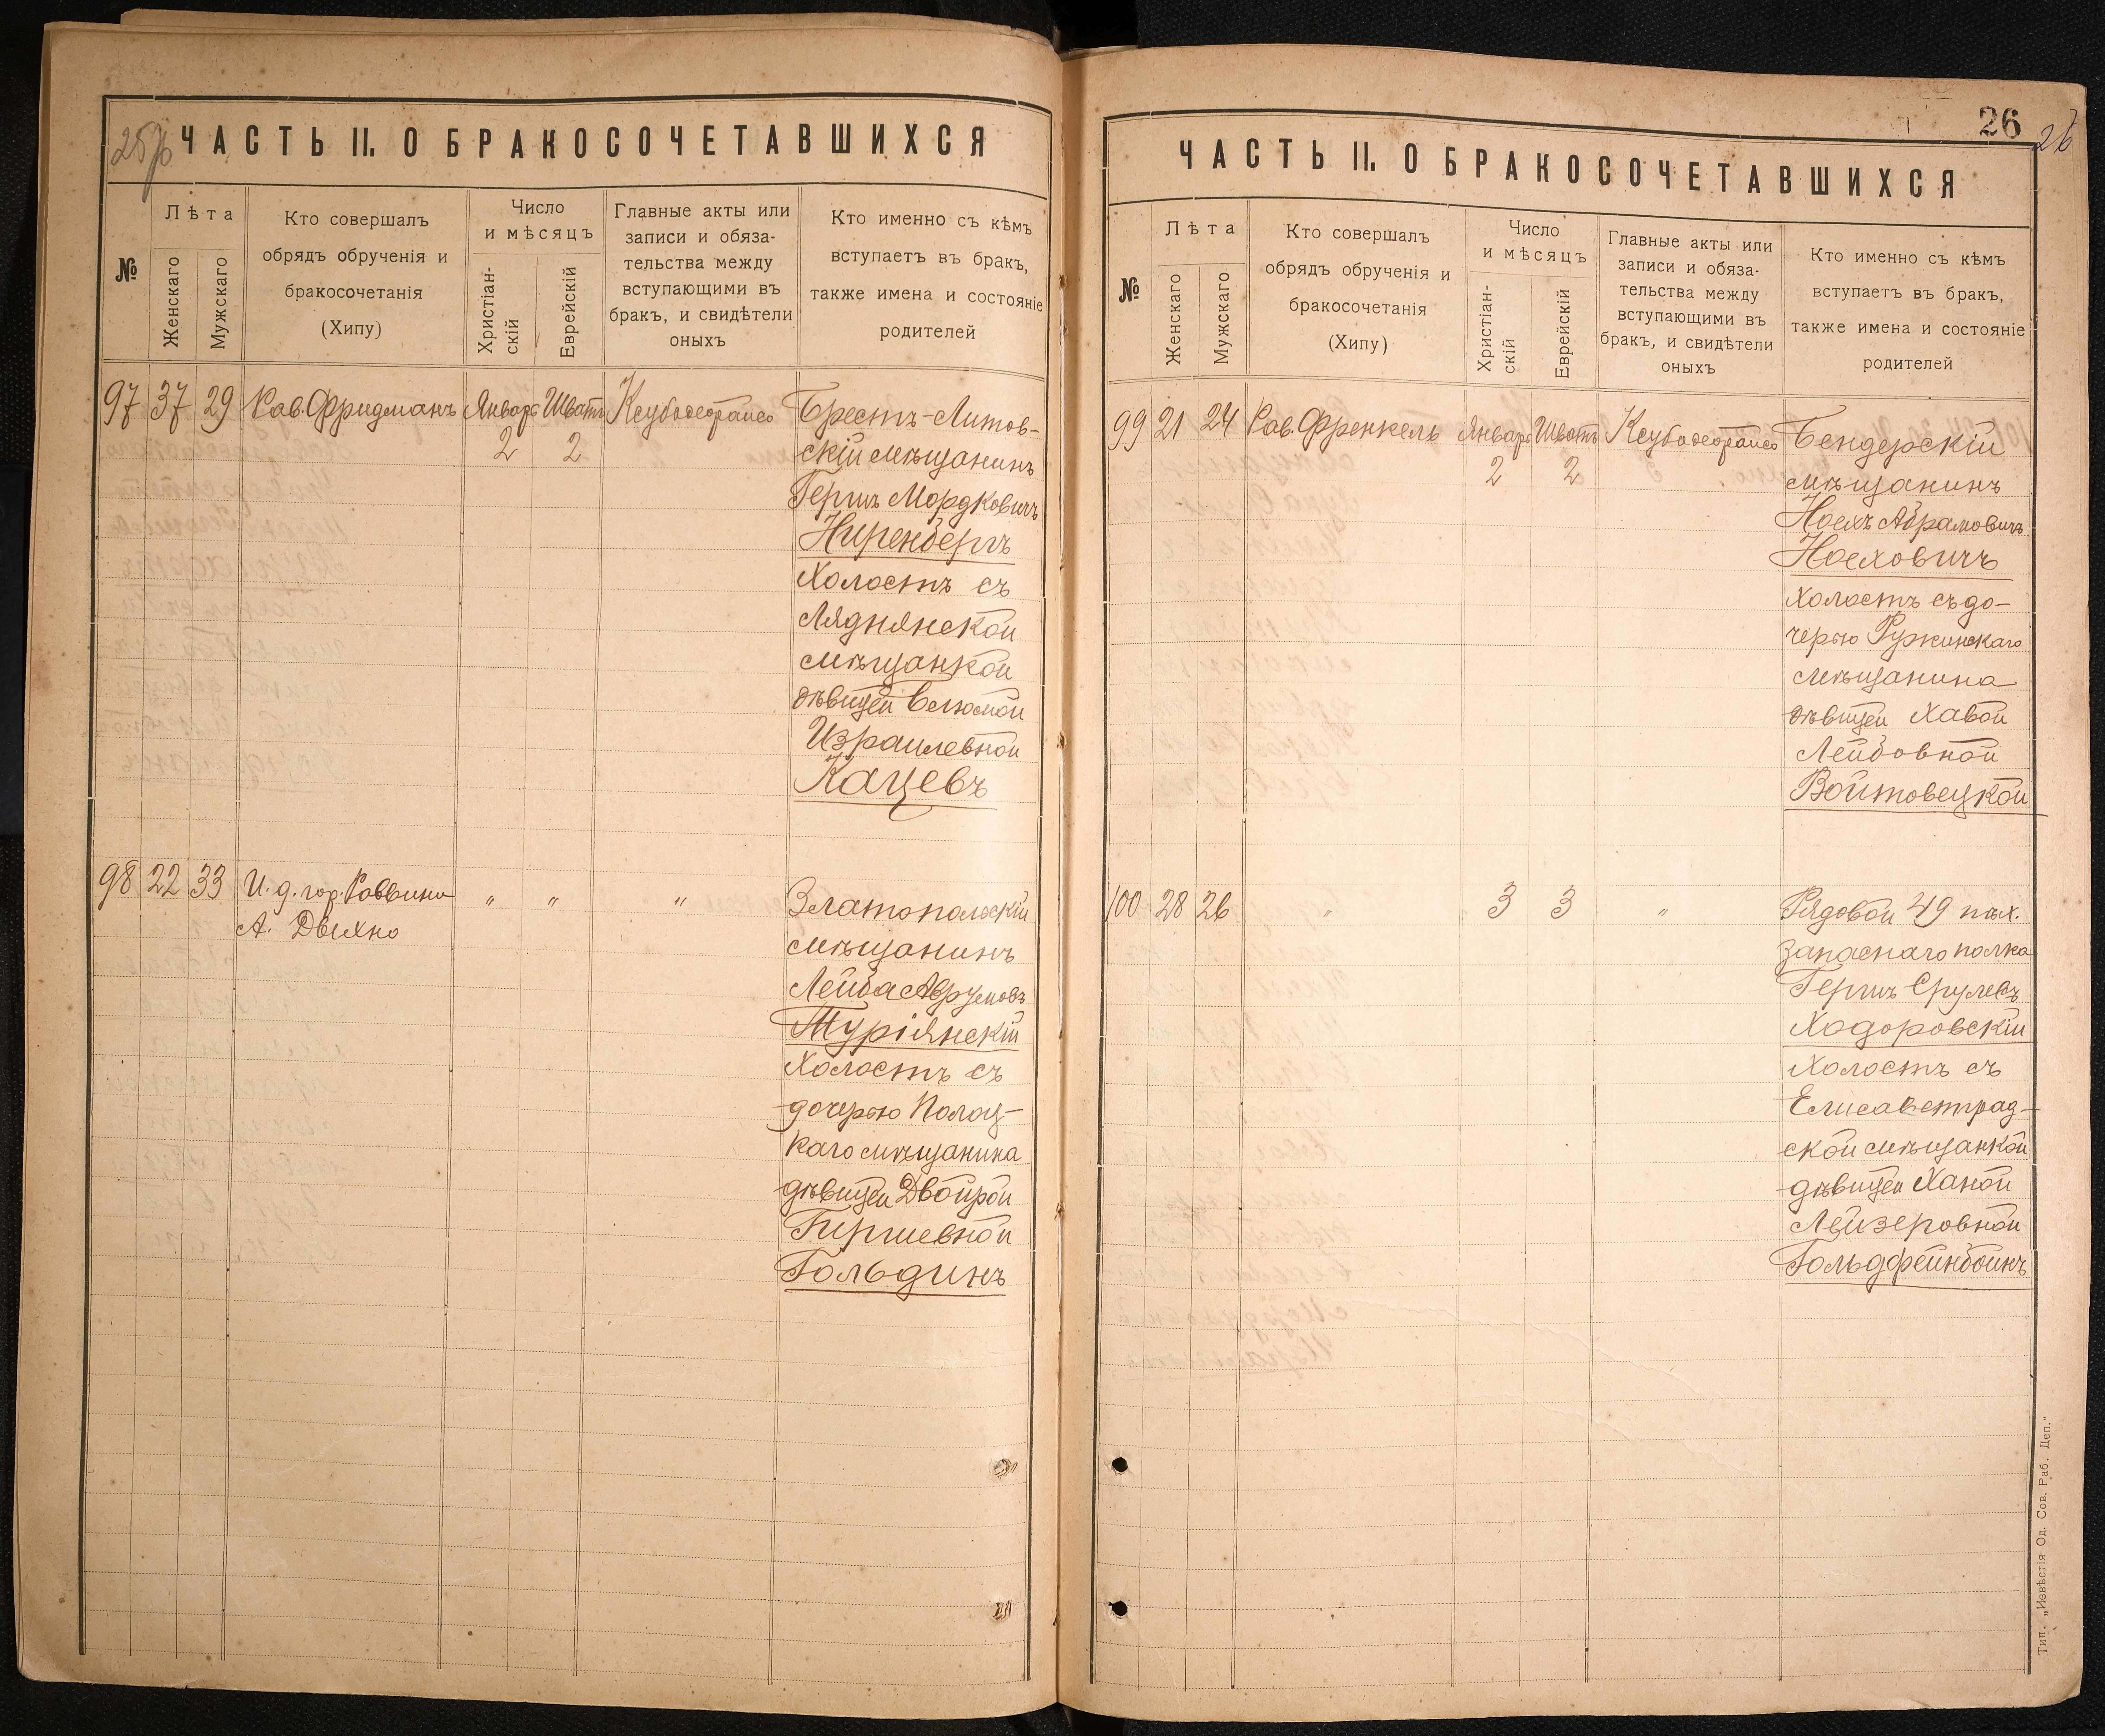 25об
ЧАСТЬ II. О БРАКОСОЧЕТАВШИХСЯ
№
Лѣта
Женскаго
Мужскаго
Кто совершалъ
обрядъ обрученія и
бракосочетанія
(Хипу)
Число
и мѣсяцъ
Христіан-
скій
Еврейскій
Главные акты или
записи и обяза-
тельства между
вступающими въ
бракъ, и свидѣтели
оныхъ
Кто именно съ кѣмъ
вступаетъ въ бракъ,
также имена и состояніе
родителей
97 37 29 Рав. Фридманъ Январь Шватъ Брестъ-Литов-
2 2 скій мѣщанинъ
Гершъ Мордковичъ
Ниренбергъ
холостъ съ
Ляднянской
мѣщанкой
дѣвицей
Израилевной
Кацевъ
98 22 33 И. д. гор. Раввина " " " Златопольскій
А. Двихно мѣщанинъ
Лейба Аврумовъ
Туріянскій
холостъ съ
дочерью Полоц-
каго мѣщанина
дѣвицей Двойрой
Гиршевной
Гольдинъ
26
26
ЧАСТЬ II. О БРАКОСОЧЕТАВШИХСЯ
№
Лѣта
Женскаго
Мужскаго
Кто совершалъ
обрядъ обрученія и
бракосочетанія
(Хипу)
Число
и мѣсяцъ
Христіан-
скій
Еврейскій
Главные акты или
записи и обяза-
тельства между
вступающими въ
бракъ, и свидѣтели
оныхъ
Кто именно съ кѣмъ
вступаетъ въ бракъ,
также имена и состояніе
родителей
99 21 24 Рав. Френкель Январь Шватъ Бендерскій
2 2 мѣщанинъ
Ноехъ Абрамовичъ
Ноеховичъ
холостъ съ до-
черью Ружинскаго
мѣщанина
дѣвицей Хавой
Лейбовной
Войтовецкой
100 28 26 " 3 3 " Рядовой 49 пѣх.
запаснаго полка
Гершъ Срулевъ
Ходоровскій
холостъ съ
Елисаветград-
ской мѣщанкой
дѣвицей Ханой
Лейзеровной
Гольдфейнбоинъ
Тип. „Извѣстія Од. Сов. Раб. Деп."